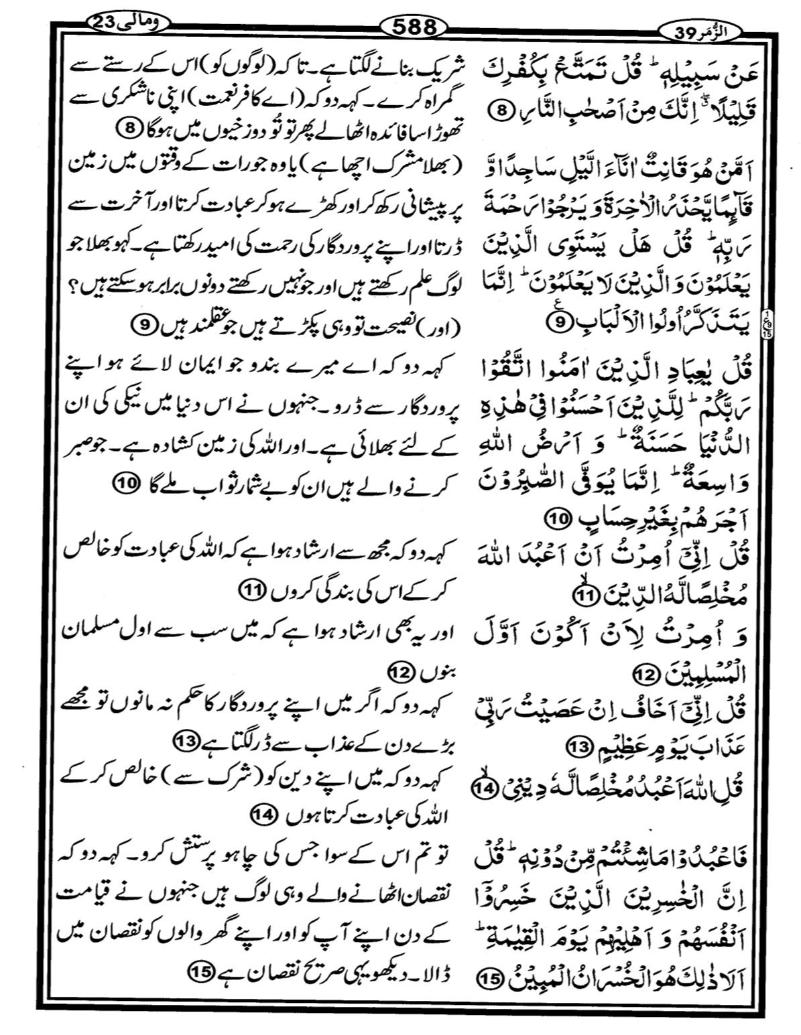 الزُّمَر 39
588
ومالی 23
عَنْ سَبِيْلِهٖ ؕ قُلْ تَمَتَّعْ بِكُفْرِكَ
قَلِيْلًا ۖۗ اِنَّكَ مِنْ اَصْحٰبِ النَّارِ 8
اَمَّنْ هُوَ قَانِتٌ اٰنَآءَ الَّيْلِ سَاجِدًا وَّ
قَآئِمًا يَّحْذَرُ الْاٰخِرَةَ وَ يَرْجُوْا رَحْمَةَ
رَبِّهٖ ؕ قُلْ هَلْ يَسْتَوِى الَّذِيْنَ
يَعْلَمُوْنَ وَ الَّذِيْنَ لَا يَعْلَمُوْنَ ؕ اِنَّمَا
يَتَذَكَّرُ اُولُوا الْاَلْبَابِ 9 ع
قُلْ يٰعِبَادِ الَّذِيْنَ اٰمَنُوا اتَّقُوْا
رَبَّكُمْ ؕ لِلَّذِيْنَ اَحْسَنُوْا فِىْ هٰذِهِ
الدُّنْيَا حَسَنَةٌ ؕ وَ اَرْضُ اللّٰهِ
وَاسِعَةٌ ؕ اِنَّمَا يُوَفَّى الصّٰبِرُوْنَ
اَجْرَهُمْ بِغَيْرِ حِسَابٍ 10
قُلْ اِنِّىْۤ اُمِرْتُ اَنْ اَعْبُدَ اللّٰهَ
مُخْلِصًا لَّهُ الدِّيْنَ ۙ 11
وَ اُمِرْتُ لِاَنْ اَكُوْنَ اَوَّلَ
الْمُسْلِمِيْنَ 12
قُلْ اِنِّىْۤ اَخَافُ اِنْ عَصَيْتُ رَبِّىْ
عَذَابَ يَوْمٍ عَظِيْمٍ 13
قُلِ اللّٰهَ اَعْبُدُ مُخْلِصًا لَّهٗ دِيْنِىْ ۙ 14
فَاعْبُدُوْا مَا شِئْتُمْ مِّنْ دُوْنِهٖ ؕ قُلْ
اِنَّ الْخٰسِرِيْنَ الَّذِيْنَ خَسِرُوْۤا
اَنْفُسَهُمْ وَ اَهْلِيْهِمْ يَوْمَ الْقِيٰمَةِ ؕ
اَلَا ذٰلِكَ هُوَ الْخُسْرَانُ الْمُبِيْنُ 15
شریک بنانے لگتا ہے۔ تاکہ (لوگوں کو) اس کے رستے سے
گمراہ کرے۔ کہہ دو کہ (اے کافر نعمت) اپنی ناشکری سے
تھوڑا سا فائدہ اٹھا لے پھر تو تُو دوزخیوں میں ہوگا 8
(بھلا مشرک اچھا ہے) یا وہ جو رات کے وقتوں میں زمین
پر پیشانی رکھ کر اور کھڑے ہو کر عبادت کرتا اور آخرت سے
ڈرتا اور اپنے پروردگار کی رحمت کی امید رکھتا ہے۔ کہو بھلا جو
لوگ علم رکھتے ہیں اور جو نہیں رکھتے دونوں برابر ہوسکتے ہیں؟
(اور) نصیحت تو وہی پکڑتے ہیں جو عقلمند ہیں 9
کہہ دو کہ اے میرے بندو جو ایمان لائے ہو اپنے
پروردگار سے ڈرو۔ جنہوں نے اس دنیا میں نیکی کی ان
کے لئے بھلائی ہے۔ اور اللہ کی زمین کشادہ ہے۔ جو صبر
کرنے والے ہیں ان کو بے شمار ثواب ملے گا 10
کہہ دو کہ مجھ سے ارشاد ہوا ہے کہ اللہ کی عبادت کو خالص
کر کے اس کی بندگی کروں 11
اور یہ بھی ارشاد ہوا ہے کہ میں سب سے اول مسلمان
بنوں 12
کہہ دو کہ اگر میں اپنے پروردگار کا حکم نہ مانوں تو مجھے
بڑے دن کے عذاب سے ڈر لگتا ہے 13
کہہ دو کہ میں اپنے دین کو (شرک سے) خالص کر کے
اللہ کی عبادت کرتا ہوں 14
تو تم اس کے سوا جس کی چاہو پرستش کرو۔ کہہ دو کہ
نقصان اٹھانے والے وہی لوگ ہیں جنہوں نے قیامت
کے دن اپنے آپ کو اور اپنے گھر والوں کو نقصان میں
ڈالا۔ دیکھو یہی صریح نقصان ہے 15